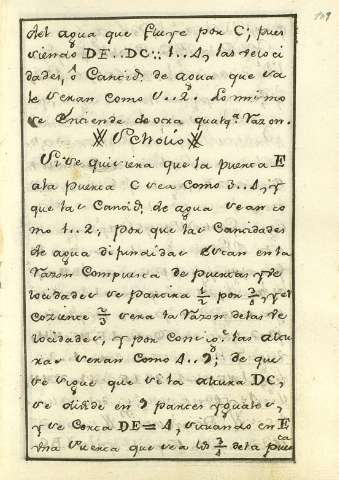 109
del agua que fluye por C; pues
siendo DE..DC:: 1..4, las veloci
dades, ô Cantid.s de agua que sa
le seran como 1..2. Lo mismo
se entiende de otra qualq.a razon.
Scholio
Si se quisiera que la puerta E
ala puerta C sea como 3..4, y
que las Cantid.s de agua sean co
mo 1..2, por que las Cantidades
de agua difundidas estan en la
razon Compuesta de puertas y ve
locidades se partira 1/2 por 3/4, y el
cociente 2/3 sera la razon de las ve
locidades, y por consig.te las altu
ras seran como 4..9; de que
se sigue que si la altura DC,
se divide en 9 partes yguales,
y se corta DE = 4, situando en E
vna puerta que sea los 3/4 de la puer
ta